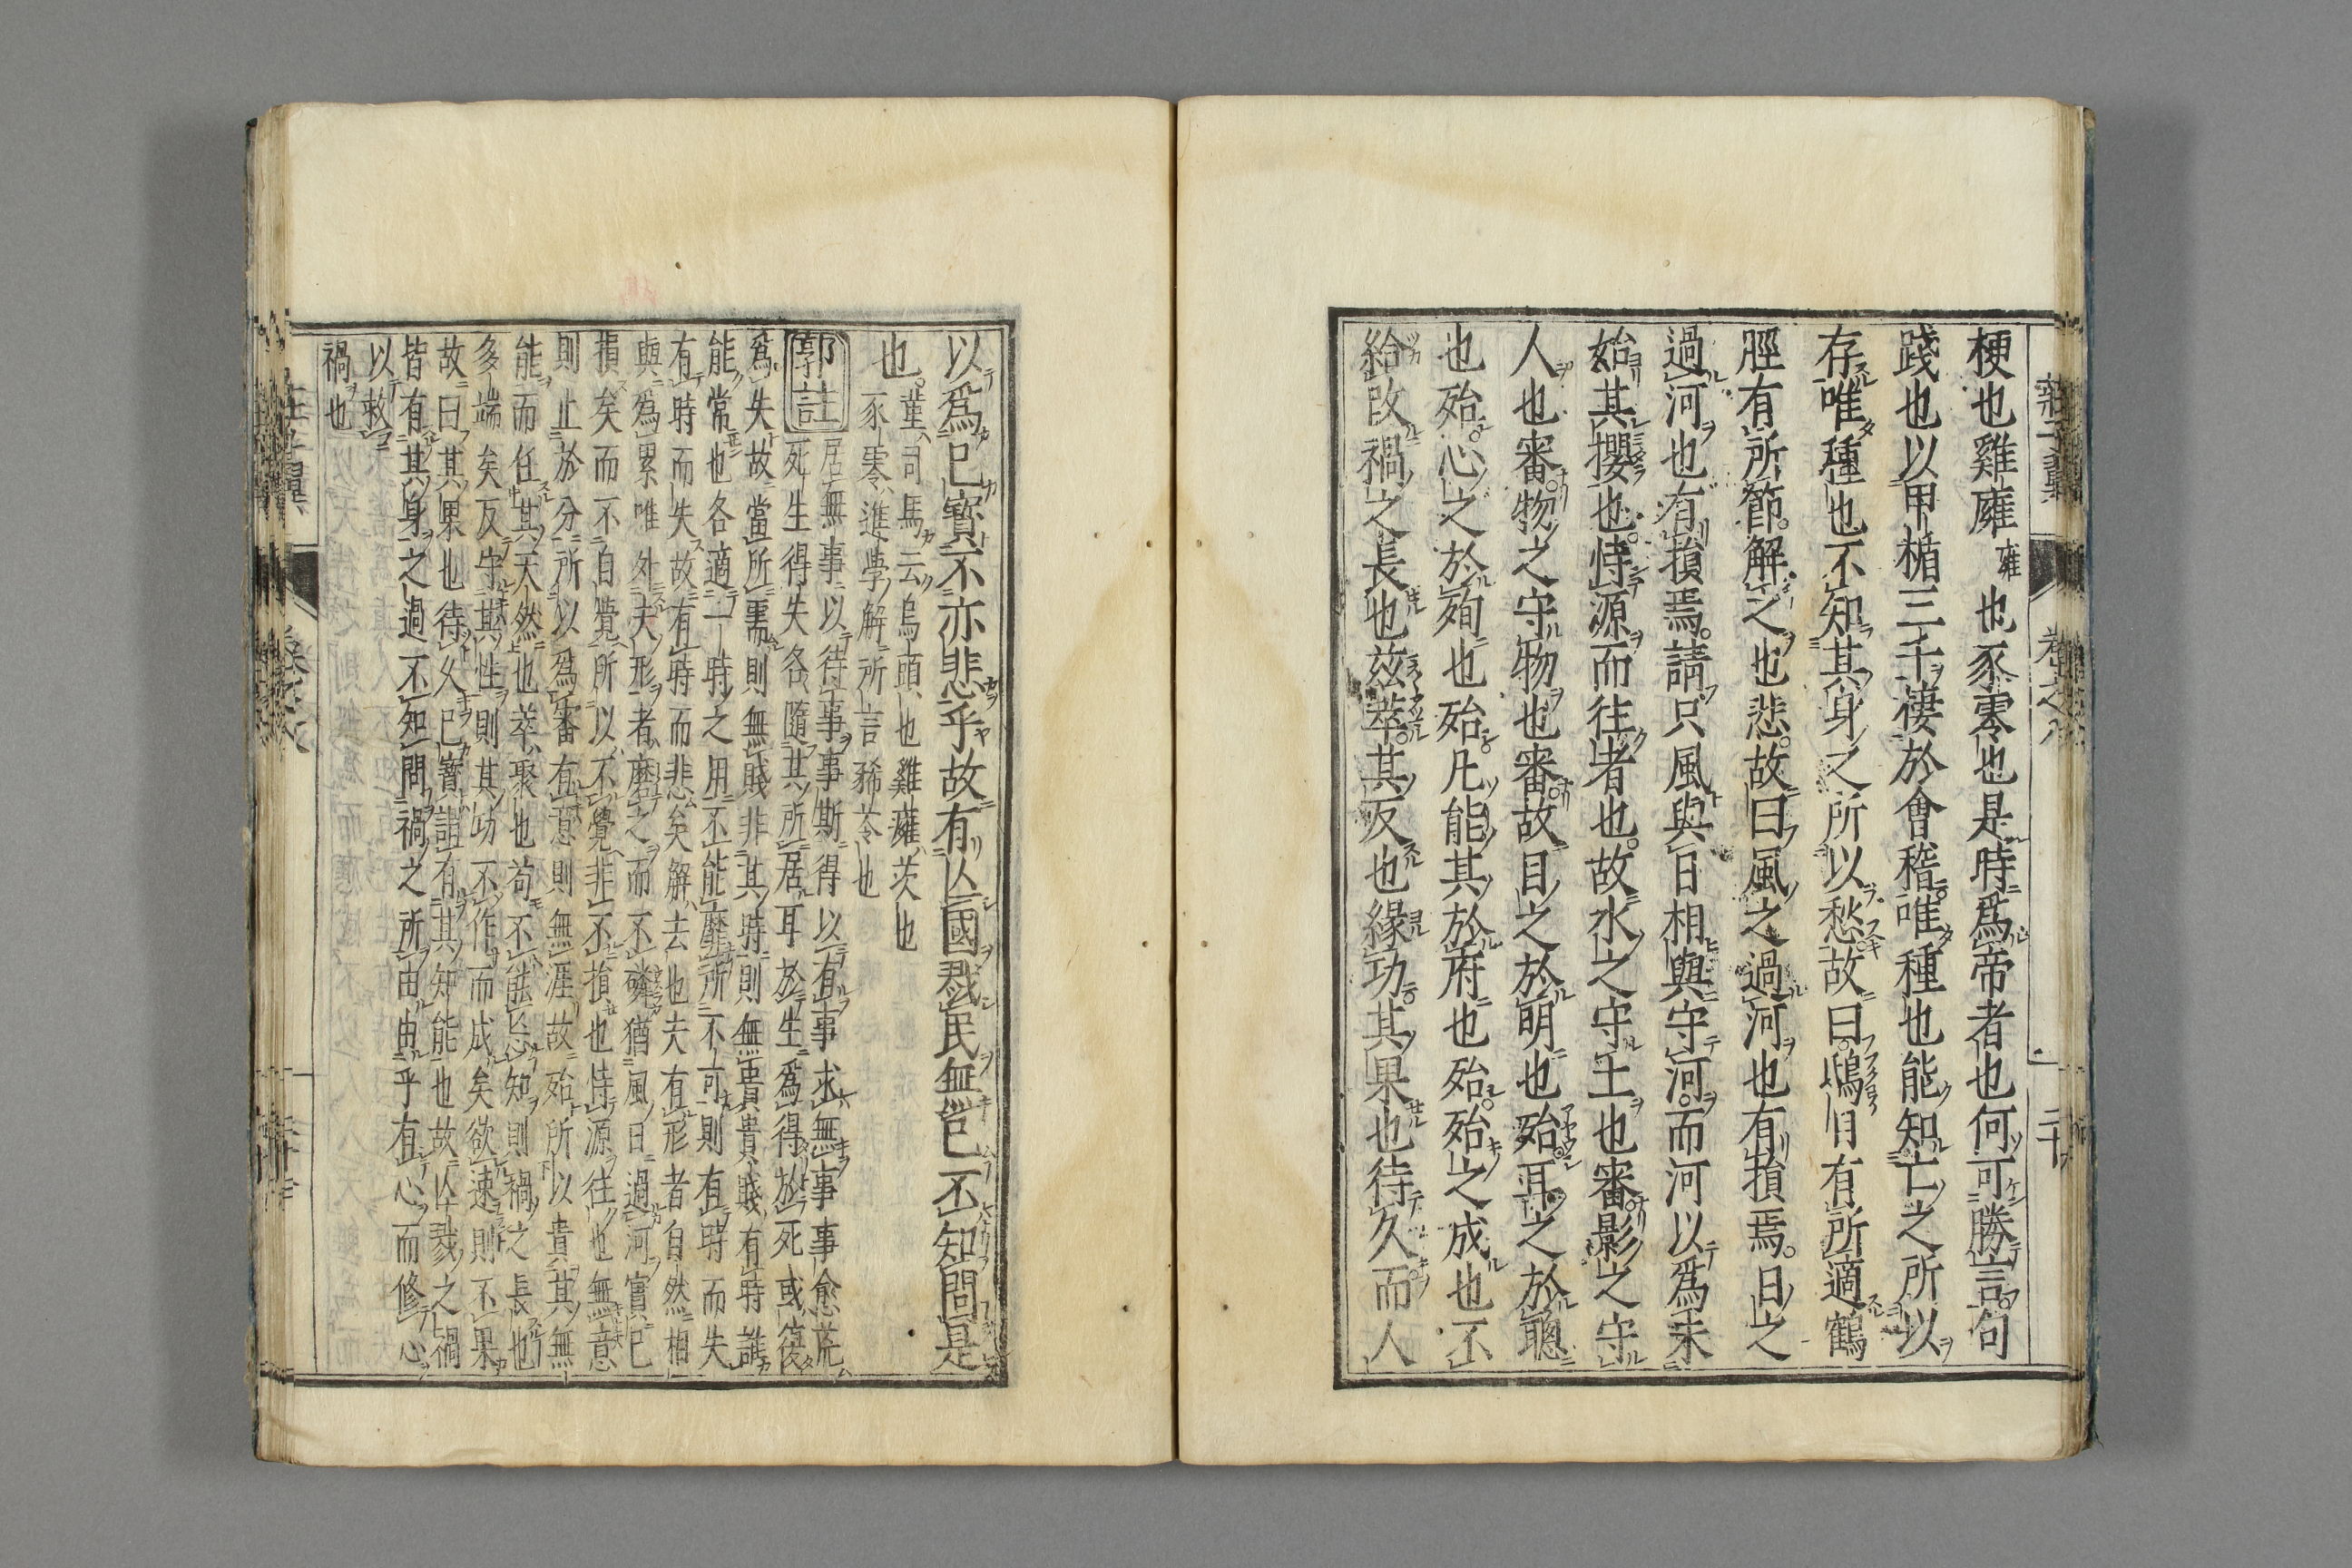 莊子翼 卷之八 二十
梗也雞廱廱也豕零也是時爲帝者也何可勝言句
踐也以甲楯三千棲於會稽唯種也能知亡之所以
存唯種也不知其身之所以愁故曰鴟目有所適鶴
脛有所節解之也悲故曰風之過河也有損焉日之
過河也有損焉請只風與日相與守河而河以爲未
始其攖也恃源而往者也故水之守土也審影之守
人也審物之守物也審故目之於明也殆耳之於聰
也殆心之於殉也殆凡能其於府也殆殆之成也不
給改禍之長也玆萃其反也緣功其果也待久而人
以爲己寶不亦悲乎故有亡國戮民無已不知問是
也菫司馬云烏頭也雞廱茨也
豕零進學解所言豨苓也
郭註 居無事以待事事斯得以有事求無事事愈荒
死生得失各隨其所居耳於生爲得於死或復
爲失故當所需則無賤非其時則無貴貴賤有時誰
能常也各適一時之用不能靡所不可則有時而失
有時而失故有時而悲矣解去也夫有形者自然相
與爲累唯外夫形者磨之而不磷猶風日過河實已
損矣而不自覺所以不覺非不損也恃源往也無意
則止於分所以爲審有意則無涯故殆所以貴其無
能而任其天然也萃聚也苟不能忘知則禍之長也
多端矣反守其性則其功不作而成矣欲速則不果
故曰其果也待久己寶謂有其知能也故亡戮之禍
皆有其身之過不知問禍之所由由乎有心而修心
以救
禍也